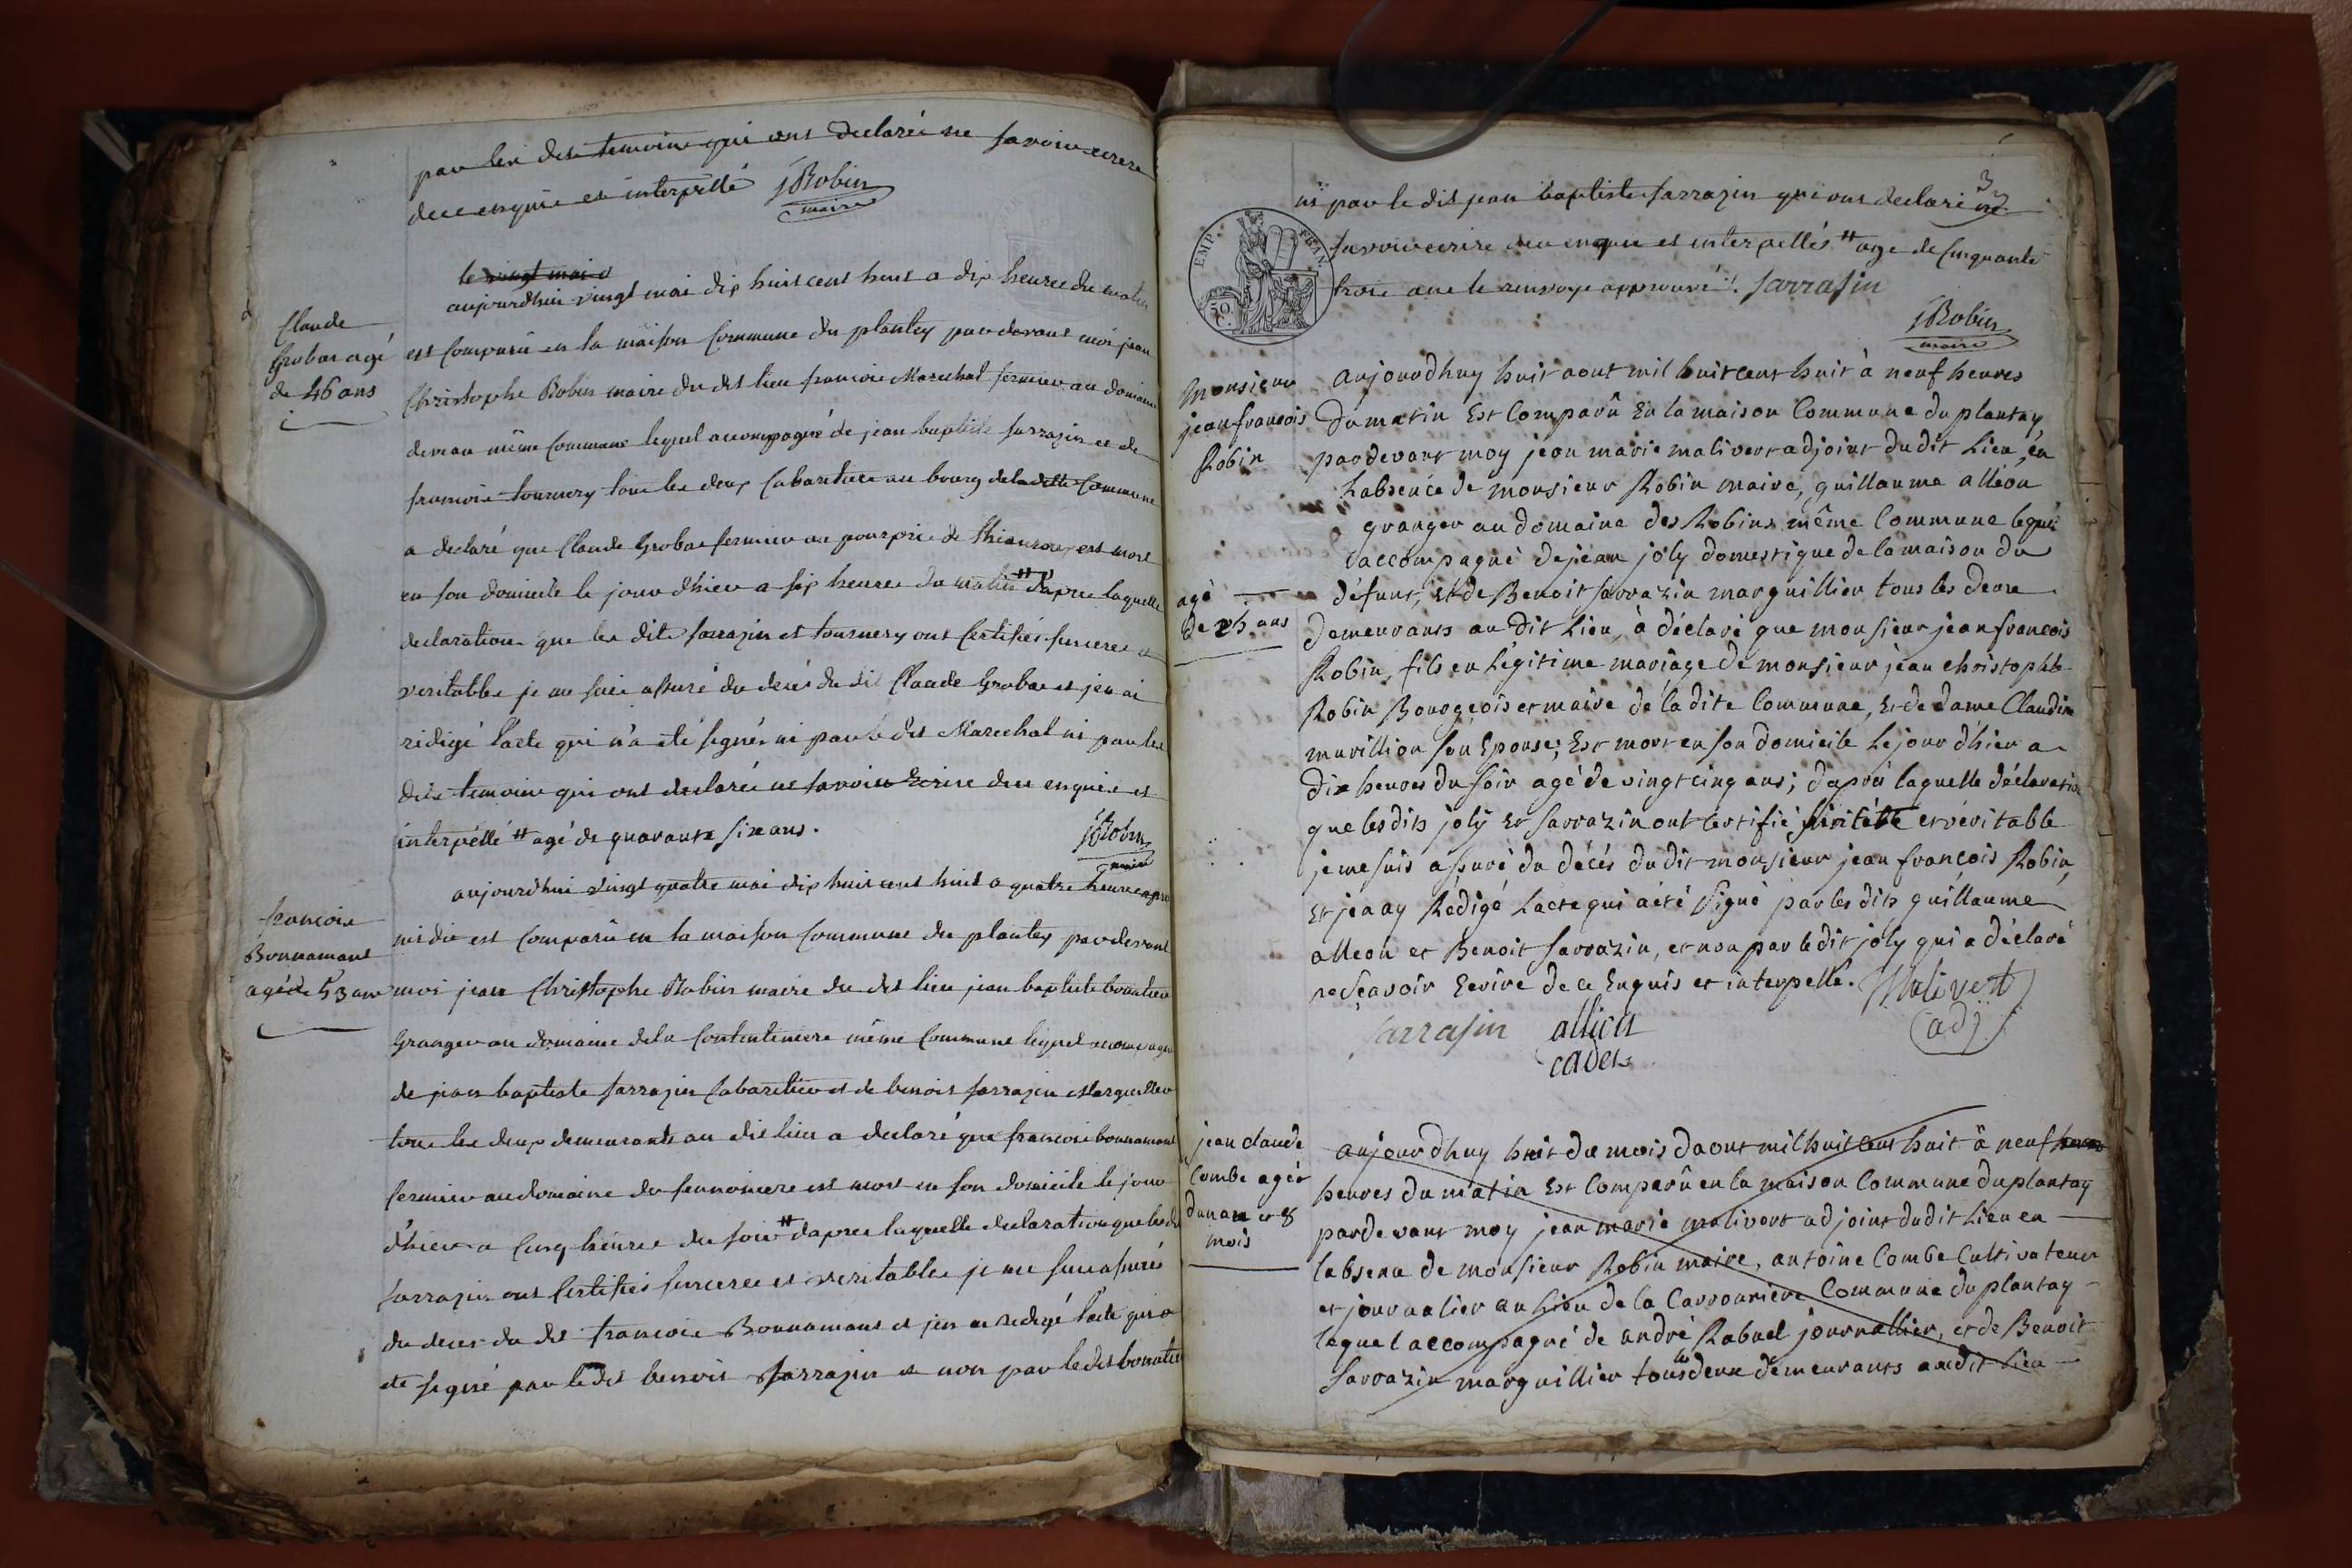 par les dits temoins qui ont declarés ne savoir ecrire
de ce enquis et interpellé JRobin
maire
le vingt mai
aujourdhui vingt mai dix huit cent huit a dix heures du matin
Claude
Grobas agé
de 46 ans
est comparu en la maison Commune du plantey par devant moi jean
Christophe Robin maire du dit lieu francois Marechal fermier au domaine
même Commune lequel accompagné de jean baptiste sarrazin et de
francois tournery tous les deux Cabaretiers au bourg de la ditte Commune
a declaré que Claude Grobas fermier au pourprix de est mort
en son domicile le jour dhier a six heures du matin # dapres laquelle
declaration que les dits sarrazin et tournery ont Certifiés sinceres et
veritables je me suis assuré du decés du dit Claude Grobas et jen ai
redigé l'acte qui n'a été signés ni par le dit Marechal ni par les
dits temoins qui ont declarés ne savoir Ecrire de ce enquis et
interpéllé # agé de quarante six ans.
JRobin
maire
aujourdhui vingt quatre mai dix huit cent huit a quatre heures apres
francois
Bonnamant
agé de 53 ans
midi est comparu en la maison Commune du plantey par devant
moi jean Christophe Robin maire du dit lieu jean baptiste
Granger au domaine de la même Commune lequel accompagné
de jean baptiste sarrazin Cabaretier et de benoit sarrazin Marguillier
tous les deux demeurants au dit lieu a declaré que francois bonnamant
fermier au domaine de est mort en son domicile le jour
d'hier a Cinq heures du soir # dapres laquelle declaration que les dits
sarrazin ont Certifiés sinceres et veritables je me suis assurés
du deces du dit francois Bonnamant et jen ai redigé l'acte qui a
eté signé par le dit benoit sarrazin et non par le dit
3
ni par le dit jean baptiste sarrazin qui ont declaré ne
savoir ecrire de ce enquis et interpellés. # age de Cinquante
trois ans le renvoye approuvé. sarrasin
JRobin
maire
EMP. FRAN.
50 C.
Monsieur
jean francois
Robin
agé
de 25 ans
aujourdhuy huit aout mil huit cent huit à neuf heures
du matin Est Comparû En la maison Commune du plantay,
pardevant moy jean marie malivert adjoint du dit Lieu, en
Labsence de monsieur Robin maire, guillaume alléon
granger au domaine des Robins même Commune lequel
accompagné de jean joly domestique de la maison du
défunt, et de Benoit sarrazin marguillier tous les deux
demeurants au dit Lieu, à déclaré que monsieur jean françois
Robin, fils en Légitime mariage de monsieur jean christophe
Robin Bourgeois et maire de la dite Commune, Et de dame Claudine
murillion son Epouse; Est mort en son domicile Le jour d'hier a
dix heures du soir agé de vingt cinq ans; dapres laquelle déclaration
que les dits joly Et sarrazin ont certifié et véritable
je me suis assuré du décés du dit monsieur jean françois Robin,
Et jen ay Redigé Lacte qui a été signé par les dits guillaume
alleon et Benoit sarrazin, et non par le dit joly qui a déclaré
ne sçavoir Ecrire de ce Enquis et interpellé. Malivert
adj
sarrasin
cadet
jean claude
Combe agér
dun an et 8
mois
aujourdhuy huit du mois daout mil huit cent huit à neuf
heures du matin Est Comparû en la maison Commune du plantay
pardevant moy jean marie malivert adjoint du dit Lieu en
labsence de monsieur Robin maire, antoine Combe Cultivateur
et journalier au Lieu de la Commune du plantay
lequel accompagné de andré Rabuel journallier, et de Benoit
sarrazin marguillier tous les deux demeurants au dit Lieu